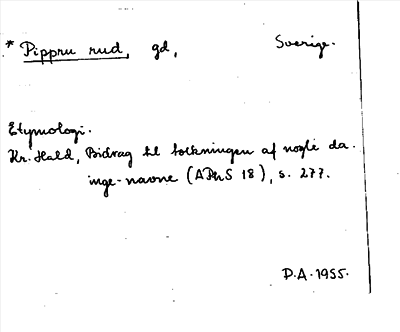 * Pippru rud, gd, Sverige.
Etymologi.
Kr. Hald, Bidrag til tolkningen af nogle da.
inge-navne (APhS 18), s. 277.
P.A. 1955.